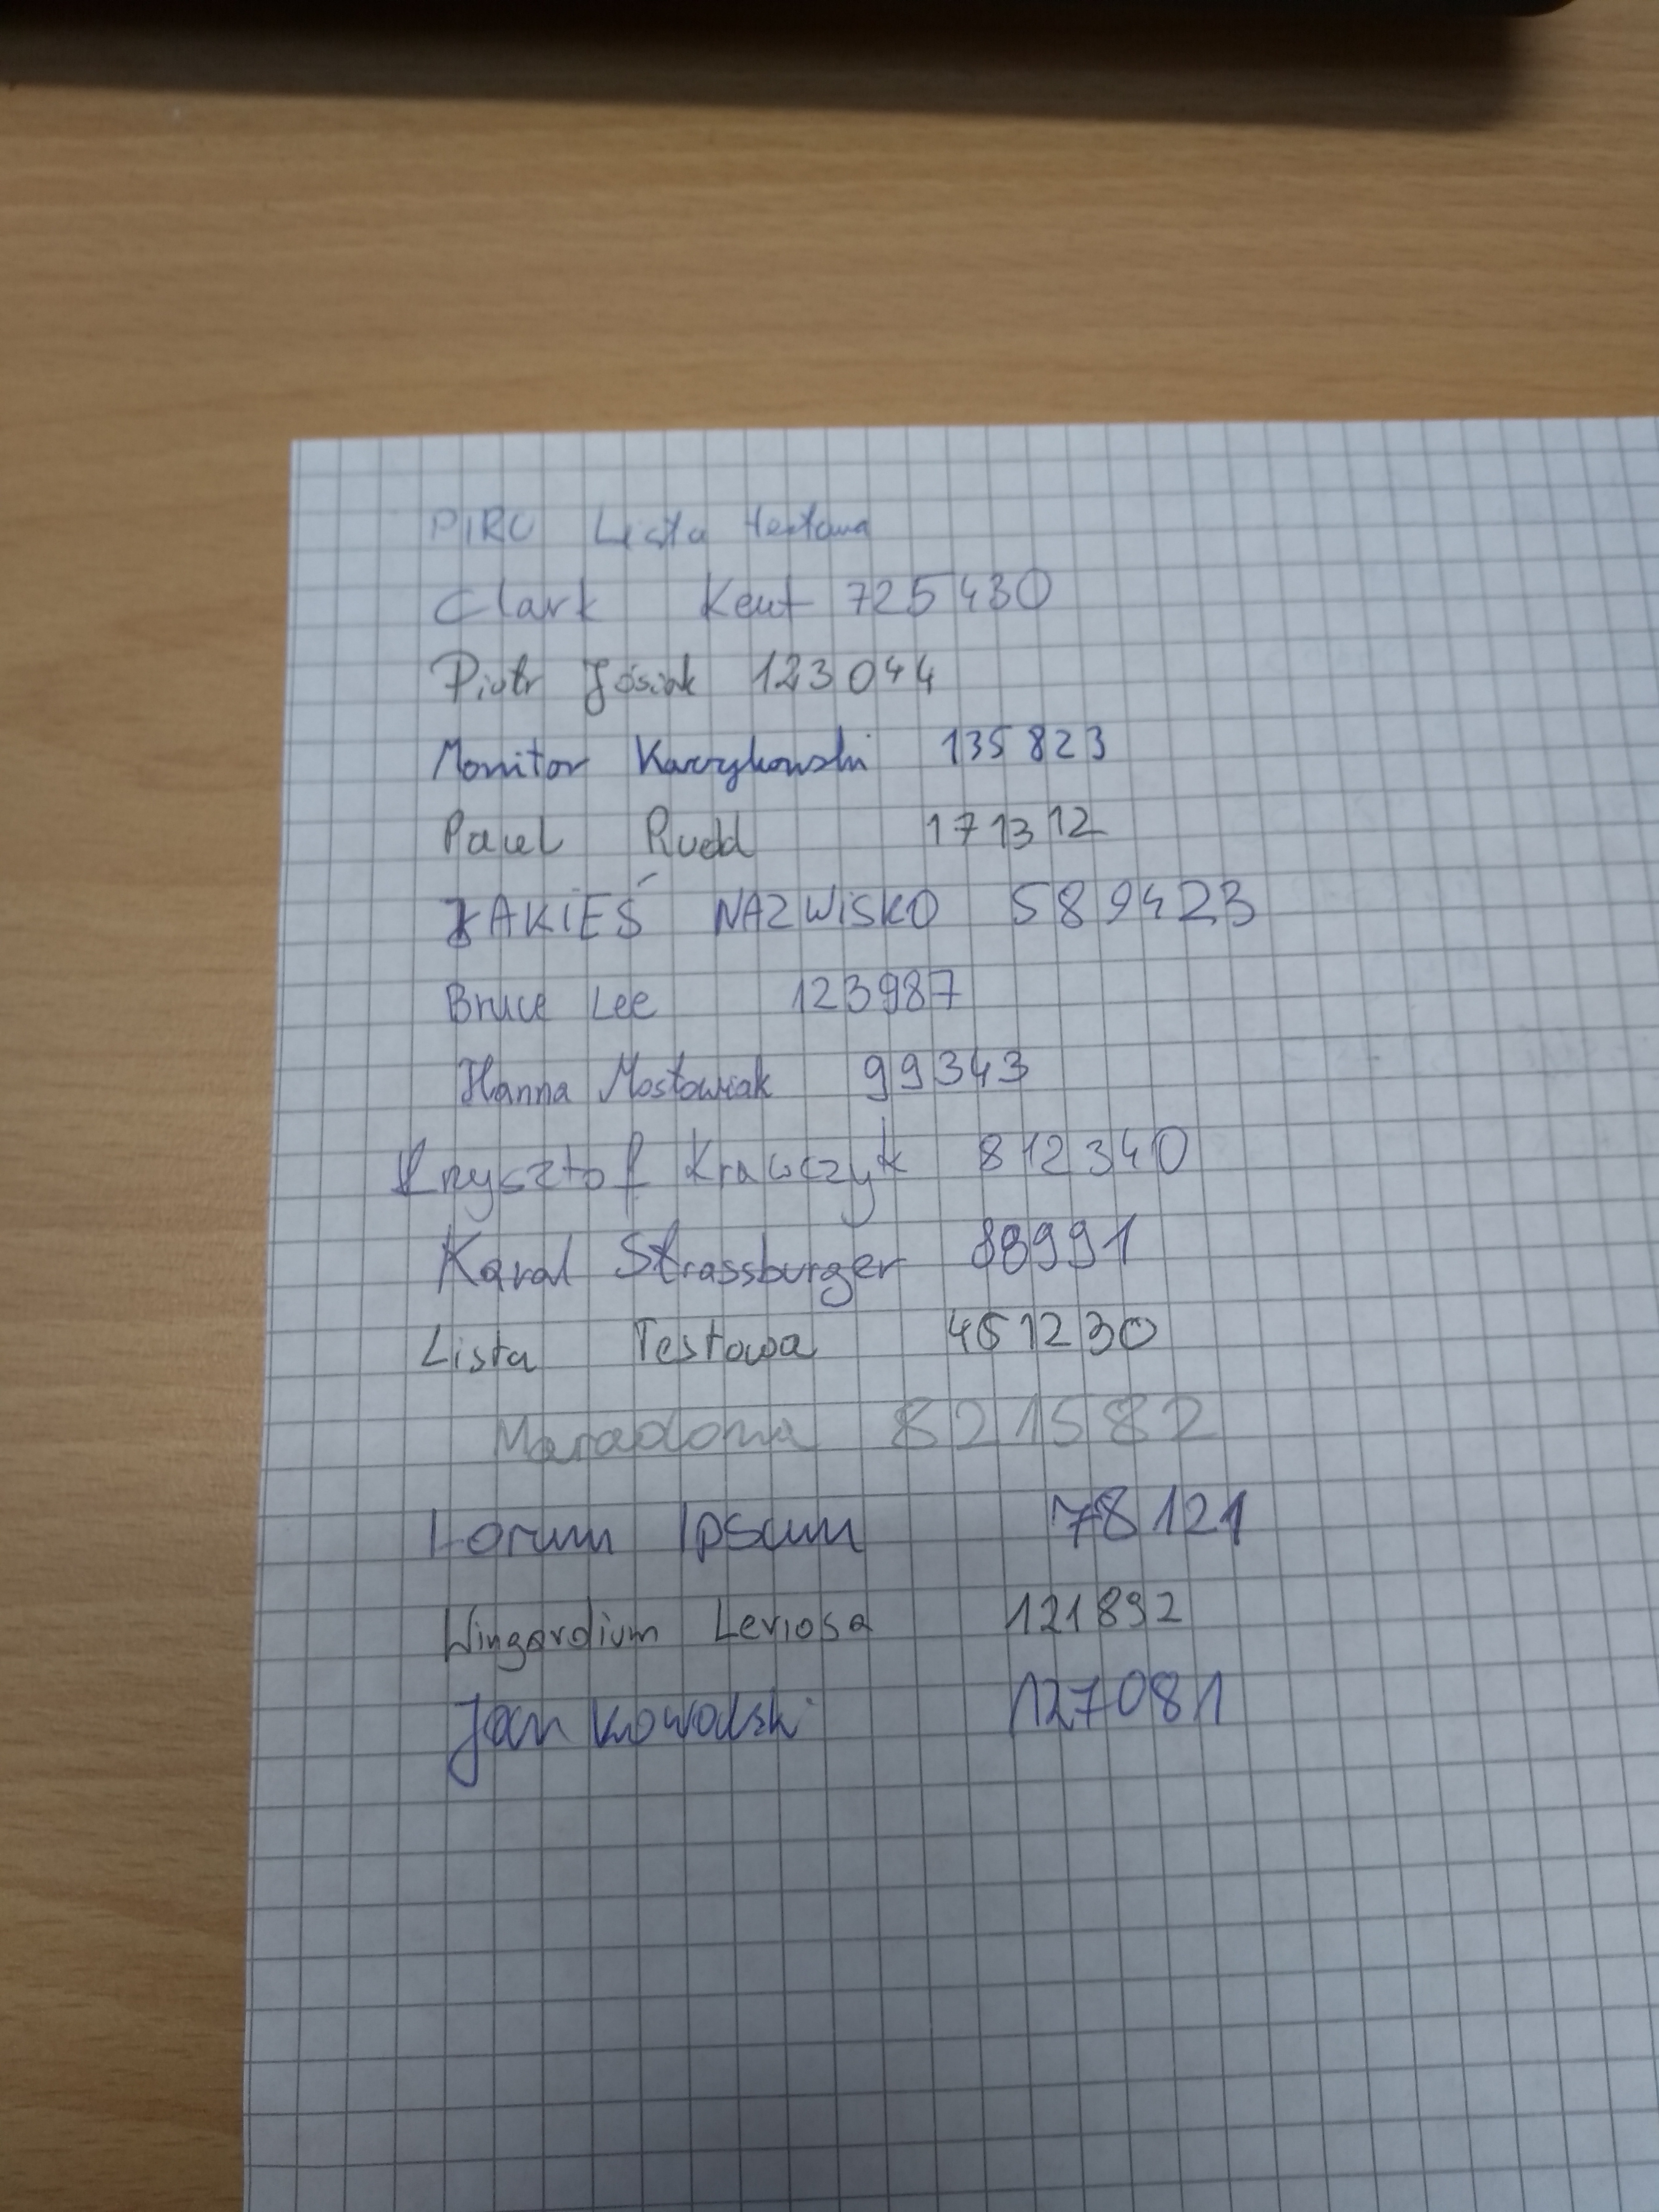 PIRO Lista testowa
Clark Kent 725430
Piotr Jósiak 123044
Monitor 135823
Pavel Rudd 171312
JAKIEŚ NAZWISKO 589423
Bruce Lee 123987
Hanna Mostowiak 99343
Krzysztof Krawczyk 812340
Karol Strassburger 88991
Lista Testowa 451230
Maradona 821582
Lorum Ipsum 78121
Wingardium Leviosa 121892
Jan Kowalski 127081